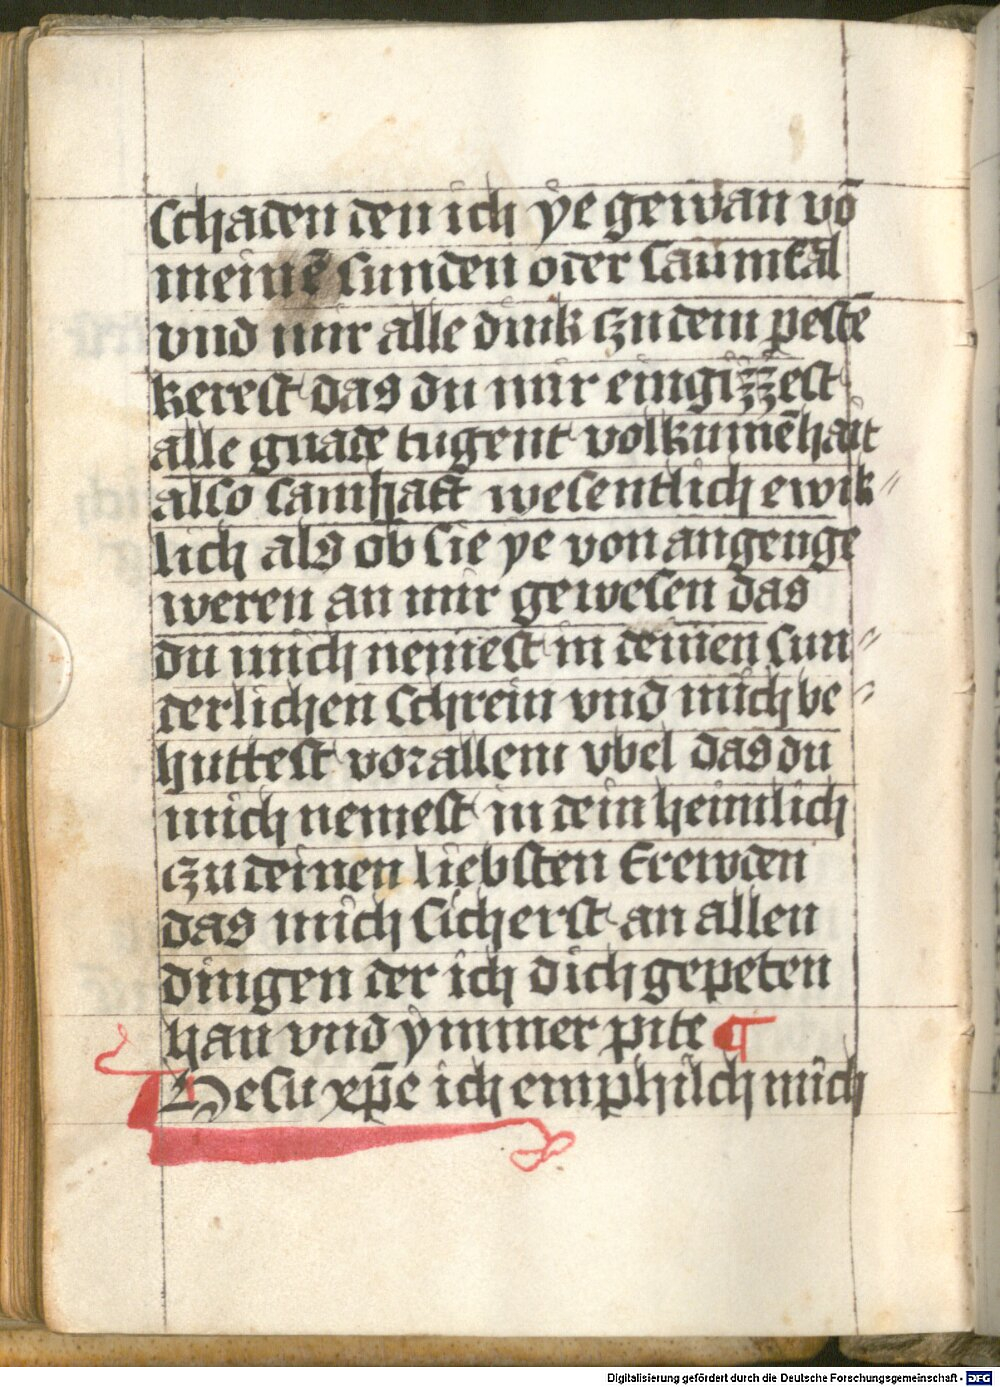 schaden den ich ÿe gewan võ
meinẽ sunden oder saumkal
vnd mir alle dink czu dem pestẽ
kerest das du mir eingizzest
alle gnade tugent volkumẽhait
also samhaft wesentlich ewik⸗
lich als ob sie ye von angenge
weren an mir gewesen das
du mich nemest in deinen sun⸗
derlichen schrein vnd mich be⸗
huttest vor allem vbel das du
mich nemest in dein heimlich
czu deinen liebsten frewden
das mich sicherst an allen
dingen der ich dich gepeten
han vnd ÿmmer pite ¶
Hesu xp̃e ich emphilch mich
Digitalisierung gefördert durch die Deutsche Forschungsgemeinschaft - DFG